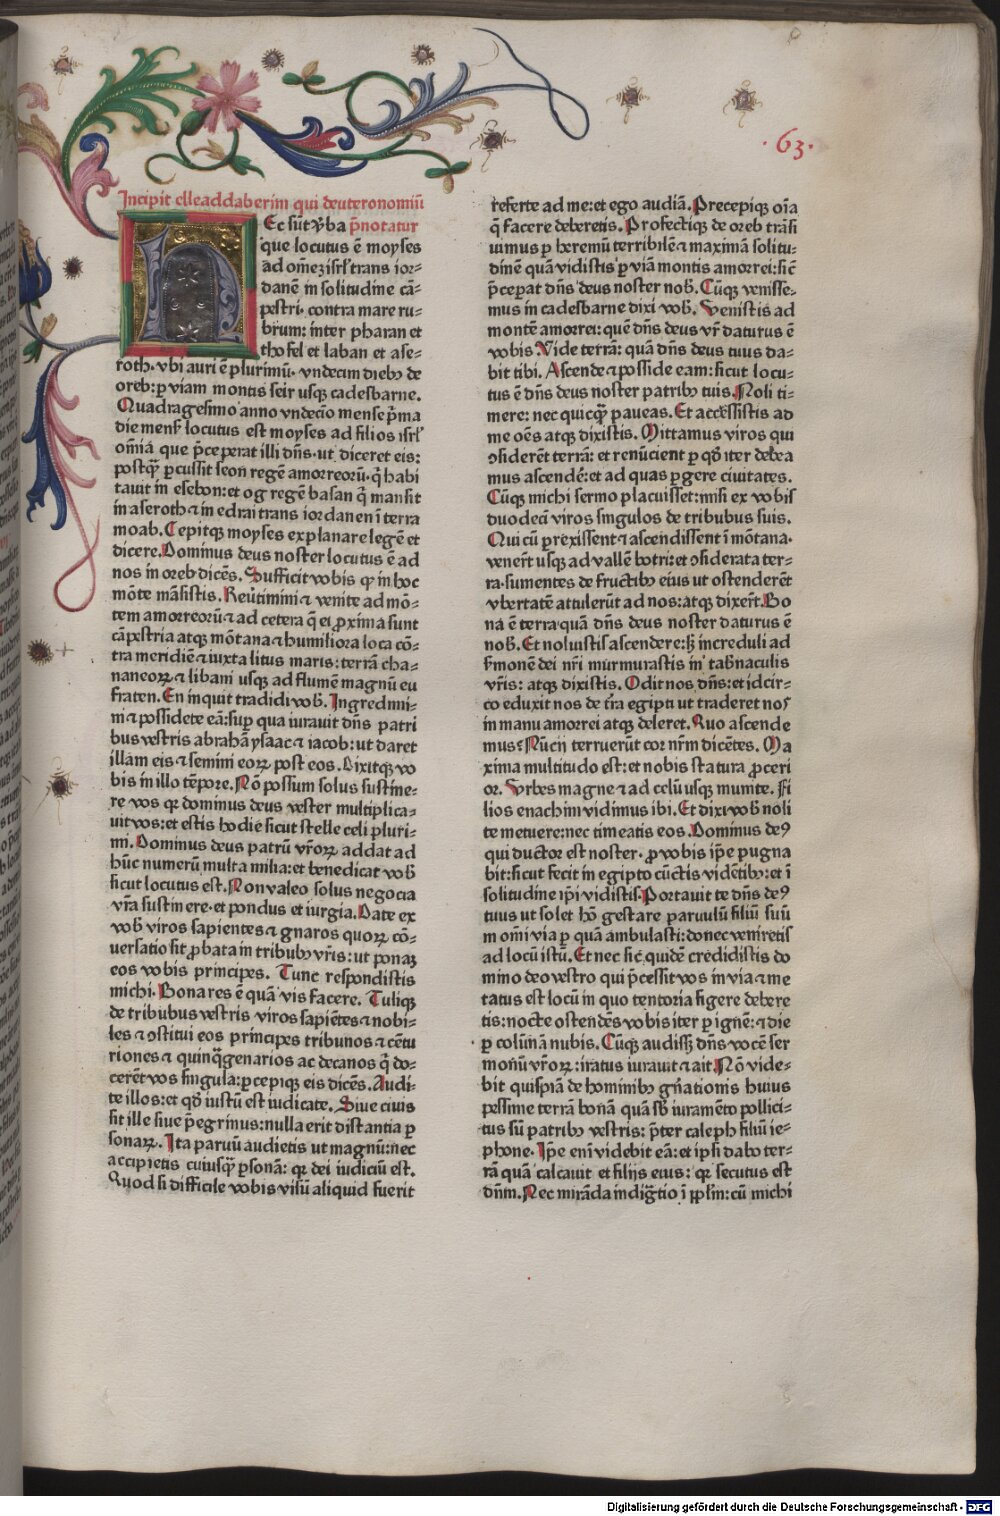 ·63·
Incipit elleaddaberim qui deuteronomiū
p̄notatur
Ec sūt ꝟba
que locutus ē moyses
ad om̄eꝫ isrl̓ trans ior⸗
danē in solitudine cā⸗
pestri· contra mare ru⸗
brum: inter pharan et
thofel et laban et ase⸗
roth· vbi auri ē plurimū· vndecim diebꝫ de
oreb: ꝑ viam montis seir usqꝫ cadesbarne.
Quadragesimo anno vndecīo mense p̄ma
die menẜ locutus est moyses ad filios isrl̓
om̄ia que p̄ceperat illi dn̄s· ut diceret eis:
postqꝫ̄ ꝑcussit seon regē amorreorū· q̄ habi
tauit in esebon: et og regē basan q̄ mansit
in aseroth ⁊ in edrai trans iordanen ī terra
moab. Cepitqꝫ moyses explanare legē et
dicere. Dominus deus noster locutus ē ad
nos in oreb dicēs. Sufficit vobis ꝙ in hoc
mōte māsistis. Reūtimini ⁊ venite ad mō⸗
tem amorreorū ⁊ ad cetera q̄ ei ꝓxima sunt
cāpestria atqꝫ mōtana ⁊ humiliora loca cō⸗
tra meridiē ⁊ iuxta litus maris: terrā cha⸗
naneoꝝ ⁊ libani usqꝫ ad flumē magnū eu
fraten. En inquit tradidi vob̄. Ingredimi⸗
ni ⁊ possidete eā: suꝑ qua iurauit dn̄s patri
bus vestris abrahā ysaac ⁊ iacob: ut daret
illam eis ⁊ semini eoꝝ post eos. Dixitqꝫ vo
bis in illo tēpore. Nō possum solus sustine⸗
re vos qꝛ dominus deus vester multiplica⸗
uit vos: et estis hodie sicut stelle celi pluri⸗
mi. Dominus deus patrū vr̄oꝝ addat ad
hūc numerū multa milia: et benedicat vob̄
sicut locutus est. Non valeo solus negocia
vr̄a sustinere· et pondus et iurgia. Date ex
vob̄ viros sapientes ⁊ gnaros quoꝝ cō⸗
uersatio sit ꝓbata in tribubꝫ vr̄is: ut ponaꝫ
eos vobis principes. Tunc respondistis
michi. Bona res ē quā vis facere. Tuliqꝫ
de tribubus vestris viros sapiētes ⁊ nobi⸗
les ⁊ ꝯstitui eos principes tribunos ⁊ cētu
riones ⁊ quinqꝫ̄genarios ac decanos q̄ do⸗
cerēt vos singula: ꝑcepiqꝫ eis dicēs. Audi⸗
te illos: et qd̄ iustū est iudicate. Siue ciuis
sit ille siue p̄egrinus: nulla erit distantia ꝑ
sonaꝝ. Ita paruū audietis ut magnū: nec
accipietis cuiusqꝫ̄ ꝑsonā: qꝛ dei iudiciū est.
Quod si difficile vobis visū aliquid fuerit
referte ad me: et ego audiā. Precepiqꝫ oīa
q̄ facere deberetis. Profectiqꝫ de oreb trāsi
uimus ꝑ heremū terribilē ⁊ maximā solitu⸗
dinē quā vidistis ꝑ viā montis amorrei: sic̄
p̄ceperat dn̄s deus noster nob̄. Cūqꝫ venisse⸗
mus in cadesbarne dixi vob̄. Venistis ad
montē amorrei: quē dn̄s deus vr̄ daturus ē
vobis. Vide terrā: quā dn̄s deus tuus da⸗
bit tibi. Ascende ⁊ posside eam: sicut locu⸗
tus ē dn̄s deus noster patribꝫ tuis. Noli ti⸗
mere: nec quicqꝫ̄ paueas. Et accessistis ad
me oēs atqꝫ dixistis. Mittamus viros qui
ꝯsiderēt terrā: et renūcient ꝑ qd̄ iter debea
mus ascendē: et ad quas ꝑgere ciuitates.
Cūqꝫ michi sermo placuisset: misi ex vobis
duodecī viros singulos de tribubus suis.
Qui cū ꝑrexissent ⁊ ascendissent ī mōtana·
venerūt usqꝫ ad vallē botri: et ꝯsiderata ter⸗
ra· sumentes de fructibꝫ eius ut ostenderēt
vbertatē attulerūt ad nos: atqꝫ dixerūt. Bo
na ē terra quā dn̄s deus noster daturus ē
nob̄. Et noluistis ascendere: sꝫ increduli ad
ẜmonē dei nr̄i murmurastis in tab̄naculis
vr̄is: atqꝫ dixistis. Odit nos dn̄s: et idcir⸗
co eduxit nos de t̄ra egipti ut traderet nos
in manu amorrei atqꝫ deleret. Quo ascende
mus? Nūcii terruerūt cor nr̄m dicētes. Ma
xima multitudo est: et nobis statura ꝓceri
or. Vrbes magne ⁊ ad celū usqꝫ munite. Fi
lios enachim vidimus ibi. Et dixi vob̄ noli
te metuere: nec timeatis eos. Dominus deꝰ
qui ductor est noster· ꝓ vobis ip̄e pugna
bit: sicut fecit in egipto cūctis vidētibꝫ: et ī
solitudine ip̄i vidistis. Portauit te dn̄s deꝰ
tuus ut solet hō gestare paruulū filiū suū
in om̄i via ꝑ quā ambulasti: donec veniretis
ad locū istū. Et nec sic̄ quidē credidistis do
mino deo vestro qui p̄cessit vos in via ⁊ me
tatus est locū in quo tentoria figere debere
tis: nocte ostendēs vobis iter ꝑ ignē: ⁊ die
ꝑ colūnā nubis. Cūqꝫ audissꝫ dn̄s vocē ser
monū vr̄oꝝ: iratus iurauit ⁊ ait. Nō vide⸗
bit quispiā de hominibꝫ gn̄ationis huius
pessime terrā bonā quā sb̄ iuramēto pollici⸗
tus sū patribꝫ vestris: p̄ter caleph filiū ie⸗
phone. Ip̄e enī videbit eā: et ipsi dabo ter⸗
rā quā calcauit et filijs eius: qꝛ secutus est
dn̄m. Nec mirāda indigtio ī pp̄lm: cū michi
Digitalisierung gefördert durch die Deutsche Forschungsgemeinschaft - DFG